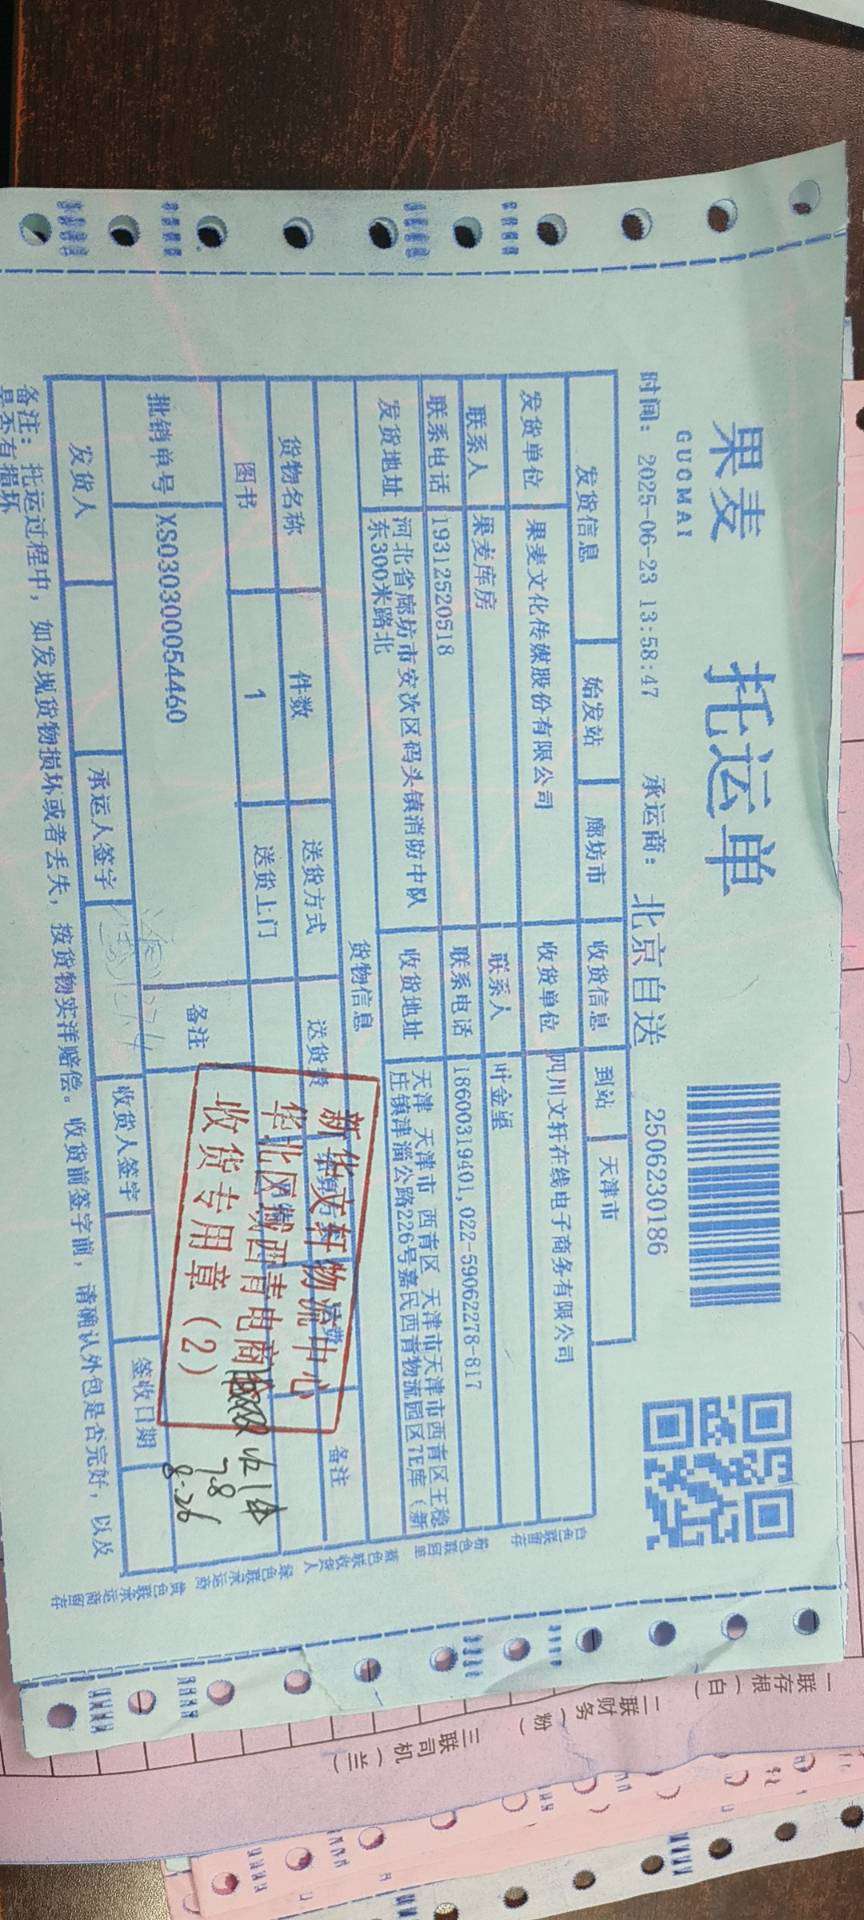 果麦
GUOMAI
托运单
时间: 2025-06-23 13:58:47 承运商: 北京自送 2506230186
发货信息 始发站 廊坊市 收货信息 到站 天津市
发货单位 果麦文化传媒股份有限公司 收货单位 四川文轩在线电子商务有限公司
联系人 果麦库房 联系人
联系电话 19312520518 联系电话 18600319401,022-59062278-817
发货地址 河北省廊坊市安次区码头镇消防中队东300米路北 收货地址 天津 天津市 西青区 天津市天津市西青区王稳庄镇津淄公路226号嘉民西青物流园区7E库(新
货物信息
货物名称 件数 送货方式 送货费 备注
图书 1 送货上门
批销单号 XS030300054460 备注
新华文轩物流中心
收货专用章(2)
7.8
8.26
发货人 承运人签字 收货人签字 签收日期
备注: 托运过程中, 如发现货物损坏或者丢失, 按货物实洋赔偿。收货前签字前, 请确认外包是否完好, 以及
是否有损坏
白色联留存
粉色联回单
蓝色联收货人
绿色联承运商
黄色联承运商留存
一联存根(白)
二联财务(粉)
三联司机(兰)